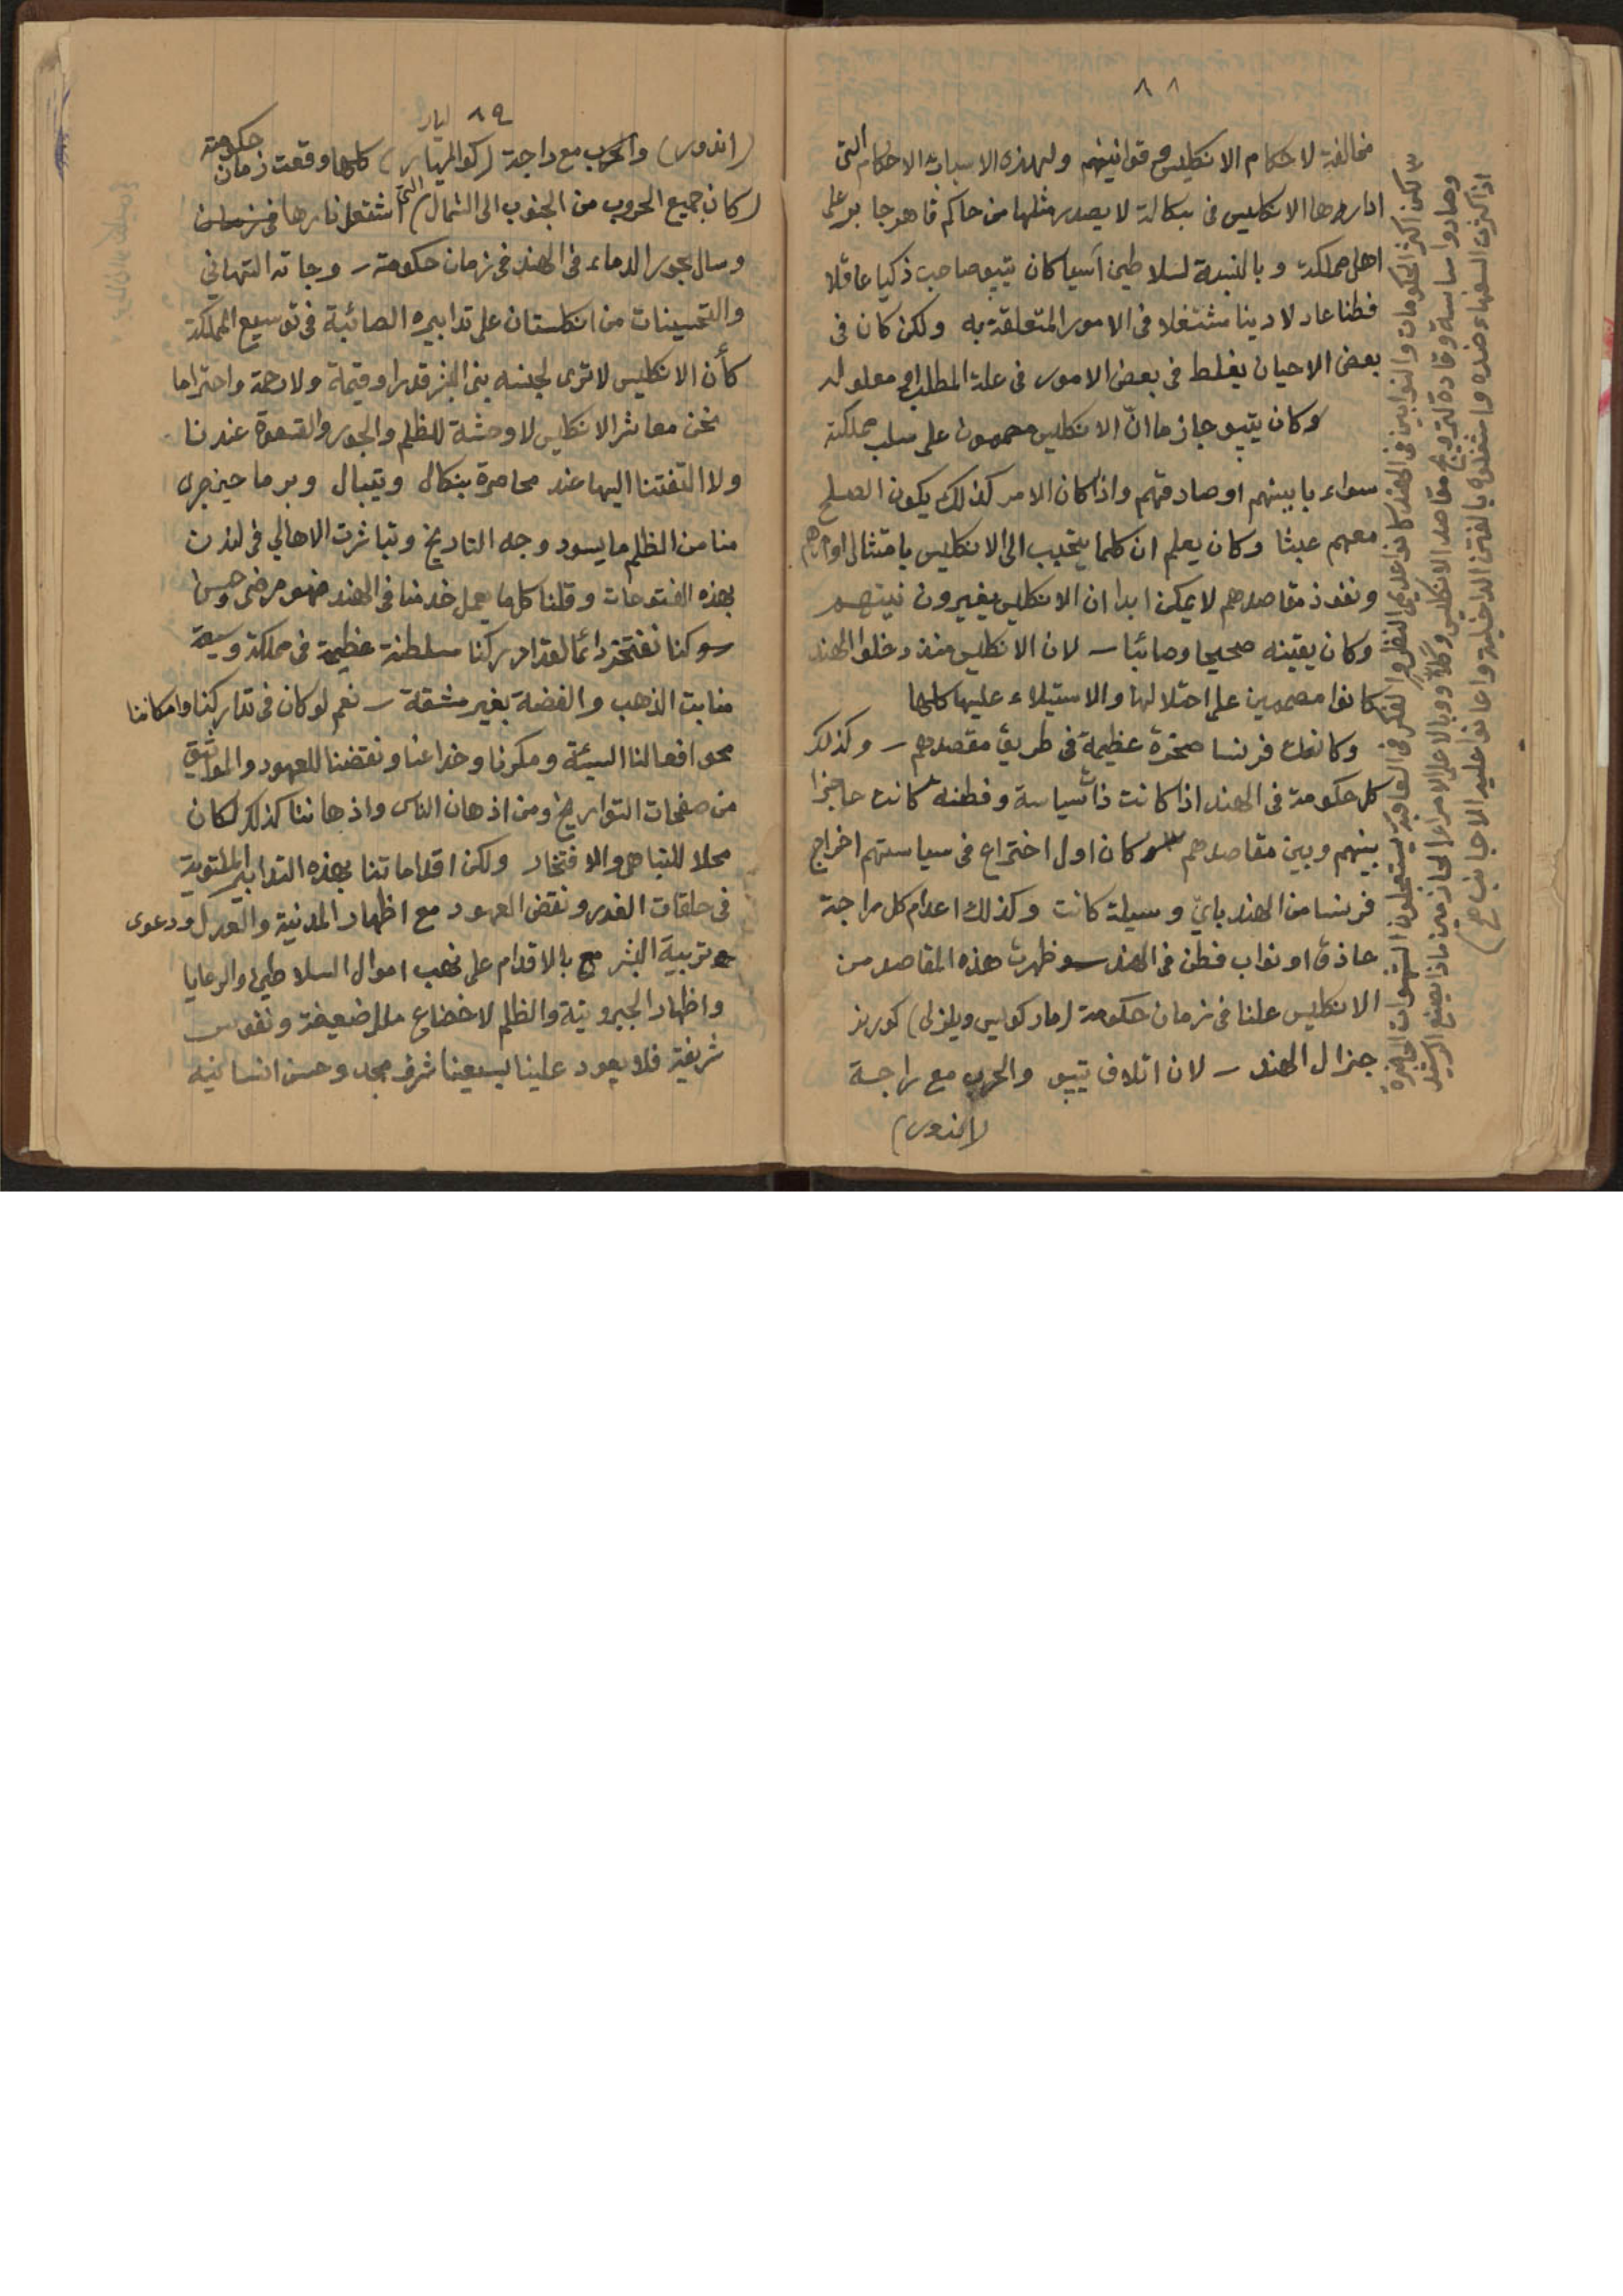 ٨٨
مخالفة لاحكام الانكليس وقوانينهم ولهذه الاسباب الاحكام التى
ادارها الانكليس فى بنكالة لا يصدر مثلها من حاكم قاهر جابر على
اهل مملكة وبالنسبة لسلاطين آسيا كان تيپو صاحب ذكيا عاقلا
فطنا عادلا دينا مشتغلا فى الامور المتعلقة به ولكن كان فى
بعض الاحيان يغلط فى بعض الامور فى علة المطلب او معلوله
وكان تيپو جازما انّ الانكليس مصممون على سلب مملكته
سواء باينهم او صادقهم واذا كان الامر كذلك يكون الصلح
معهم عبثا وكان يعلم ان كلما يتحبب الى الانكليس بامتثال اوامرهم
ونفوذ مقاصدهم لا يمكن ابدا ان الانكليس يغيرون نيتهم
وكان يقينه صحيحا وصائبا – لان الانكليس منذ دخلوا الهند
كانوا مصممين على احتلالها والاستيلاء عليها كلها
وكانت فرنسا صخرة عظيمة فى طريق مقصدهم – وكذلك
كل حكومة فى الهند اذا كانت ذات سياسة وفطنة كانت حاجزا
بينهم وبين مقاصدهم وكان اول اختراع فى سياستهم اخراج
فرنسا من الهند باىّ وسيلة كانت وكذلك اعدام كل راجة
حاذق او نواب فطن فى الهند وظهرت هذه المقاصد من
الانكليس علنا فى زمان حكومة (ماركويس ويلزلى) كورنر
جنرال الهند – لان اتلاف تيپو والحرب مع راجة
(اندور)
لكن اكثر الحكومات والنوابين فى الهند كانوا عديمى النظر والفكر فى العاقبة يستعملون الشهوات الحاضرة
وصاروا ساسة وقادة لترويج مقاصد الانكليس وكلاّ ووبالا على الامراء الحازمين ماذا يصنع الرشيد
اذا كثرت السفهاء ضده واشغلوه بالفتن الداخلية واعانوا عليه الاجانب
٨٩
(اندور) والحرب مع راجة (كواليار) كلها وقعت زمان حكومته
(كان جميع الحروب من الجنوب الى الشمال) التى اشتعل نارها فى زمان
وسال بحور الدماء فى الهند فى زمان حكومته – وجائه التهانى
والتحسينات من انكلستان على تدابيره الصائبة فى توسيع المملكة
كأن الانكليس لا ترى لجنسه بنى البشر قدرا وقيمة ولا رحمة واحتراما
نحن معاشر الانكليس لا وحشة للظلم والجور والقسوة عندنا
ولا التفتنا اليها عند محاصرة بنكال ونيبال وبرما حيث جرى
منا من الظلم ما يسود وجه التاريخ وتباشرت الاهالي فى لندن
بهذه الفتوحات وقلنا كل ما يعمل خدمنا فى الهند فهو مرضى وحسن
وكنا نفتخر دائما لقد ادركنا سلطنة عظيمة فى مملكة وسيعة
منابت الذهب والفضة بغير مشقة – نعم لو كان فى تداركنا وامكاننا
محو افعالنا السيئة ومكرنا وخداعنا ونقضنا للعهود والمواثيق
من صفحات التواريخ ومن اذهان الناس واذهاننا كذلك لكان
محلا للتباهى والافتخار ولكن اقداماتنا بهذه التدابير الملتوية
فى حلقات الغدر ونقض العهود مع اظهار المدنية والعدل ودعوى
تربية البشر مع بالاقدام على نهب اموال السلاطين والرعايا
واظهار الجبروتية والظلم لاخضاع ملل ضعيفة ونفوس
شريفة فلا يعود علينا بسعينا شرف مجد وحسن انسانية